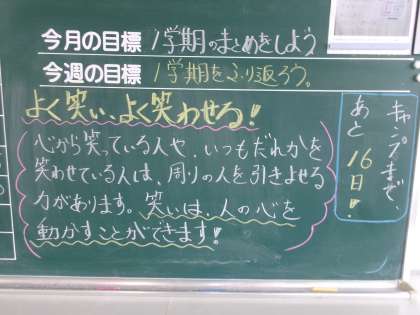 今月の目標 1学期のまとめをしよう
今週の目標 1学期をふり返ろう。
よく笑い、よく笑わせる!!
心から笑っている人や、いつもだれかを
笑わせている人は、周りの人を引きよせる
力があります。笑いは、人の心を
動かすことができます!
キャンプまで、
あと16日!!